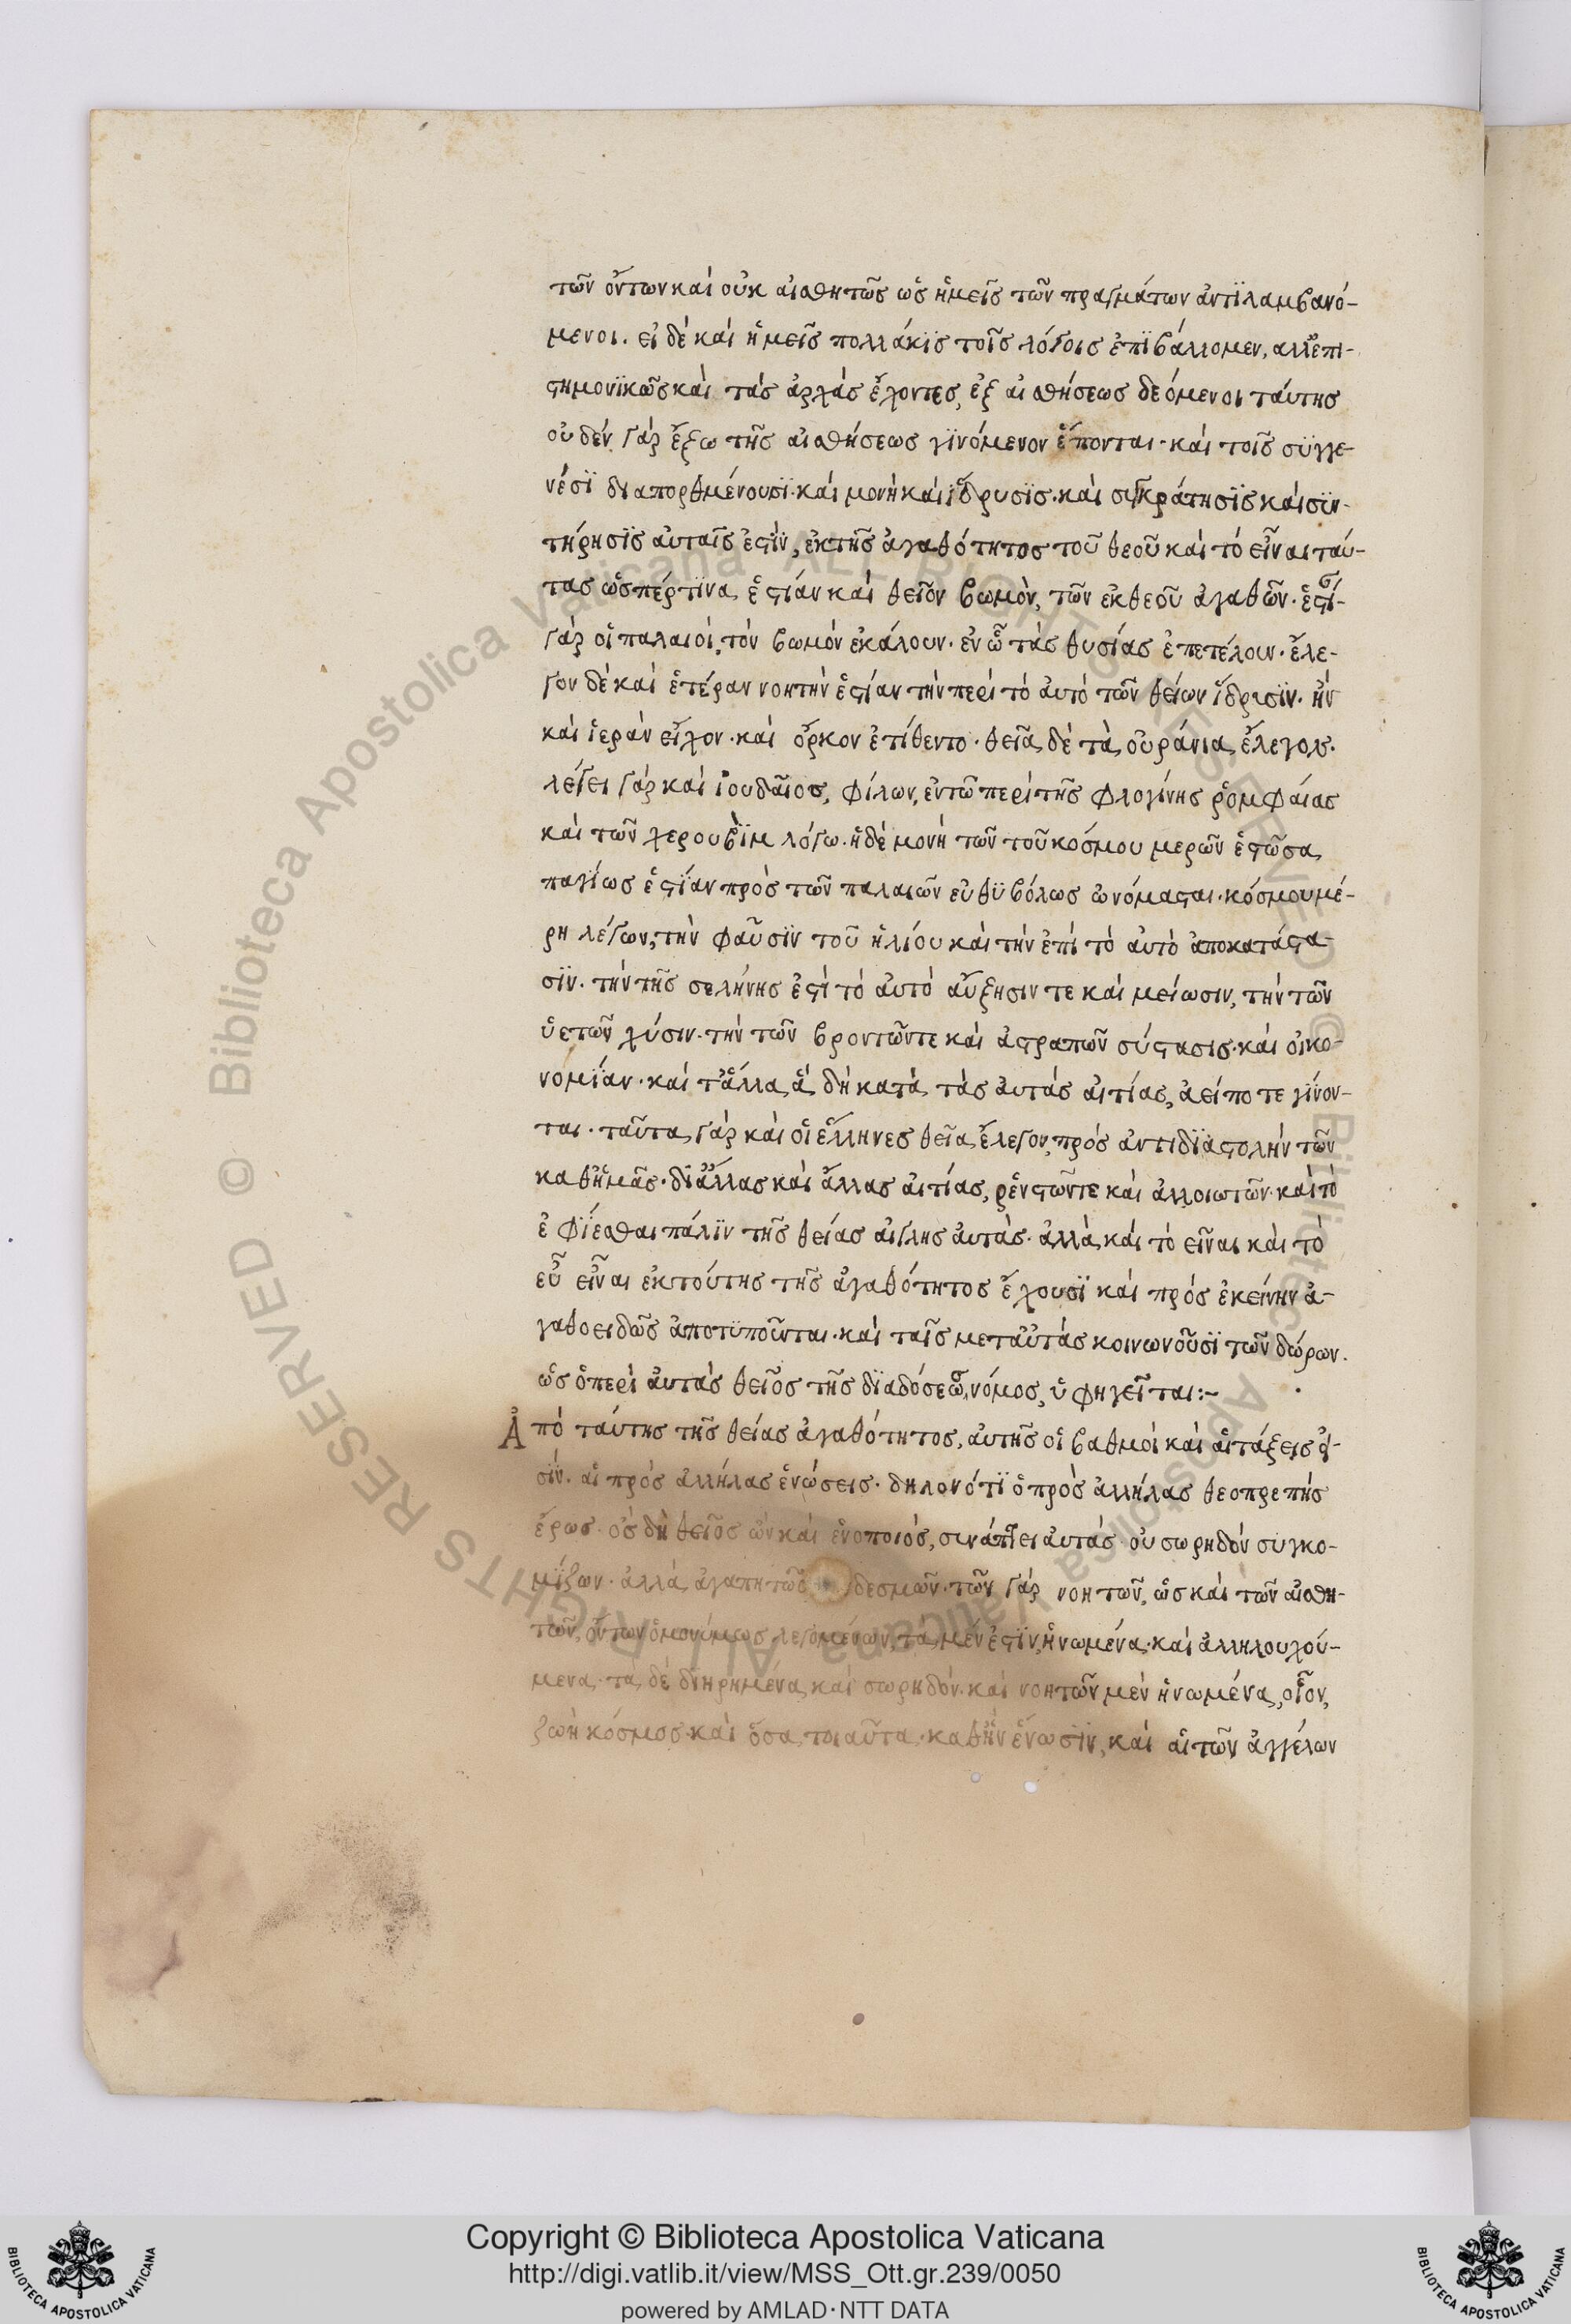 τῶν ὄντων καὶ οὐκ αἰσθητῶς ὡς ἡμεῖς τῶν πραγμάτων ἀντϊλαμβανό-
μενοι. εἰ δὲ καὶ ἡμεῖς πολλάκϊς τοῖς λόγοις ἐπϊβάλλομεν, ἀλλ' ἐπι-
στημονϊκῶς καὶ τὰς ἀρχὰς ἔχοντες, ἐξ αἰσθήσεως δεόμενοι ταύτης
οὐδὲν γὰρ ἔξω τῆς αἰσθήσεως γϊνόμενον ἕπονται· καὶ τοῖς συγγε-
νέσϊ διαπορθμένουσϊ· καὶ μονὴ καὶ ἵδρυσϊς· καὶ συγκράτησϊς καὶ συν-
τήρησϊς αὐταῖς ἐστὶν, ἐκ τῆς ἀγαθότητος τοῦ θεοῦ καὶ τὸ εἶναι ταύ-
τας ὥσπέρ τϊνα ἑστίαν καὶ θεῖον βωμὸν, τῶν ἐκ θεοῦ ἀγαθῶν· ἑστί-
γὰρ οἱ παλαιοὶ, τὸν βωμὸν ἐκάλουν· ἐν ᾧ τὰς θυσίας ἐπετέλουν· ἔλε-
γον δὲ καὶ ἑτέραν νοητὴν ἑστίαν τὴν περὶ τὸ αὐτὸ τῶν θείων ἵδρυσϊν· ἣν
καὶ ἱερὰν εἶχον· καὶ ὅρκον ἐτίθεντο· θεῖα δὲ τὰ οὐράνια ἔλεγον·
λέγει γὰρ καὶ ἰουδαῖος, φίλων, ἐν τῶ περὶ τῆς φλογίνης ῥομφαίας
καὶ τῶν χερουβὶμ λόγω· ἡ δὲ μονὴ τῶν τοῦ κόσμου μερῶν ἑστῶσα
παγίως ἑστΐαν πρὸς τῶν παλαιῶν εὐθυβόλως ὠνόμασται· κόσμου μέ-
ρη λέγων, τὴν φαῦσϊν τοῦ ἡλίου καὶ τὴν ἐπὶ τὸ αὐτὸ ἀποκατάστα-
σϊν. τὴν τῆς σελήνης ἐστὶ τὸ αὐτὸ αὔξησιν τε καὶ μείωσιν, τὴν τῶν
ὑετῶν χύσιν· τὴν τῶν βροντῶντε καὶ ἀστραπῶν σύστασις· καὶ οἰκο-
νομΐαν· καὶ τἄλλα ἃ δὴ κατὰ τὰς αὐτὰς αἰτίας, ἀεί ποτε γίνον-
ται· ταῦτα γὰρ καὶ οἱ ἕλληνες θεῖα ἔλεγον, πρὸς ἀντιδϊαστολὴν τῶν
καθ' ἡμᾶς· δι' ἄλλας καὶ ἄλλας αἰτίας, ῥευστῶντε καὶ ἀλλοιωτῶν· καὶ τὸ
ἐφΐεσθαι πάλϊν τῆς θείας αἴγλης αὐτὰς· ἀλλὰ καὶ τὸ εἶναι καὶ τὸ
εὖ εἶναι ἐκ τούτης τῆς ἀγαθότητος ἔχουσϊ καὶ πρὸς ἐκείνην ἀ-
γαθοειδῶς ἀποτϋποῦνται· καὶ ταῖς μετ' αὐτὰς κοινωνοῦσϊ τῶν δώρων.
ὡς ὁ περὶ αὐτὰς θεῖος τῆς δϊαδόσεως νόμος, ὑφηγεῖται:~
Ἀπὸ ταύτης τῆς θείας ἀγαθότητος, αὐτῆς οἱ βαθμοὶ καὶ αἱ τάξεις εἰ-
σϊν. αἱ πρὸς ἀλλήλας ἑνώσεις· δηλονότϊ ὁ πρὸς ἀλλήλας θεοπρεπὴς
ἔρως· ὃς δὴ θεῖος ὢν καὶ ἑνοποιὸς, συνάπτει αὐτάς· οὐ σωρηδὸν συγκο-
μίζων· ἀλλὰ ἀγαπητῶς δεσμῶν· τῶν γὰρ νοητῶν, ὡς καὶ τῶν αἰσθη-
τῶν, ὄντων ὁμονύμως λεγομένων, τὰ μὲν ἐστϊν, ἡνωμένα· καὶ ἀλληλουχού-
μενα· τὰ δὲ διηρημένα καὶ σωρηδόν· καὶ νοητῶν μὲν ἡνωμένα, οἷον,
ζωὴ κόσμος· καὶ ὅσα τοιαῦτα· καθ' ἣν ἕνωσϊν, καὶ αἱ τῶν ἀγγέλων
Copyright © Biblioteca Apostolica Vaticana
http://digi.vatlib.it/view/MSS_Ott.gr.239/0050
powered by AMLAD·NTT DATA
BIBLIOTECA APOSTOLICA VATICANA
BIBLIOTECA APOSTOLICA VATICANA
© Biblioteca Apostolica Vaticana ALL RIGHTS RESERVED
© Biblioteca Apostolica Vaticana ALL RIGHTS RESERVED